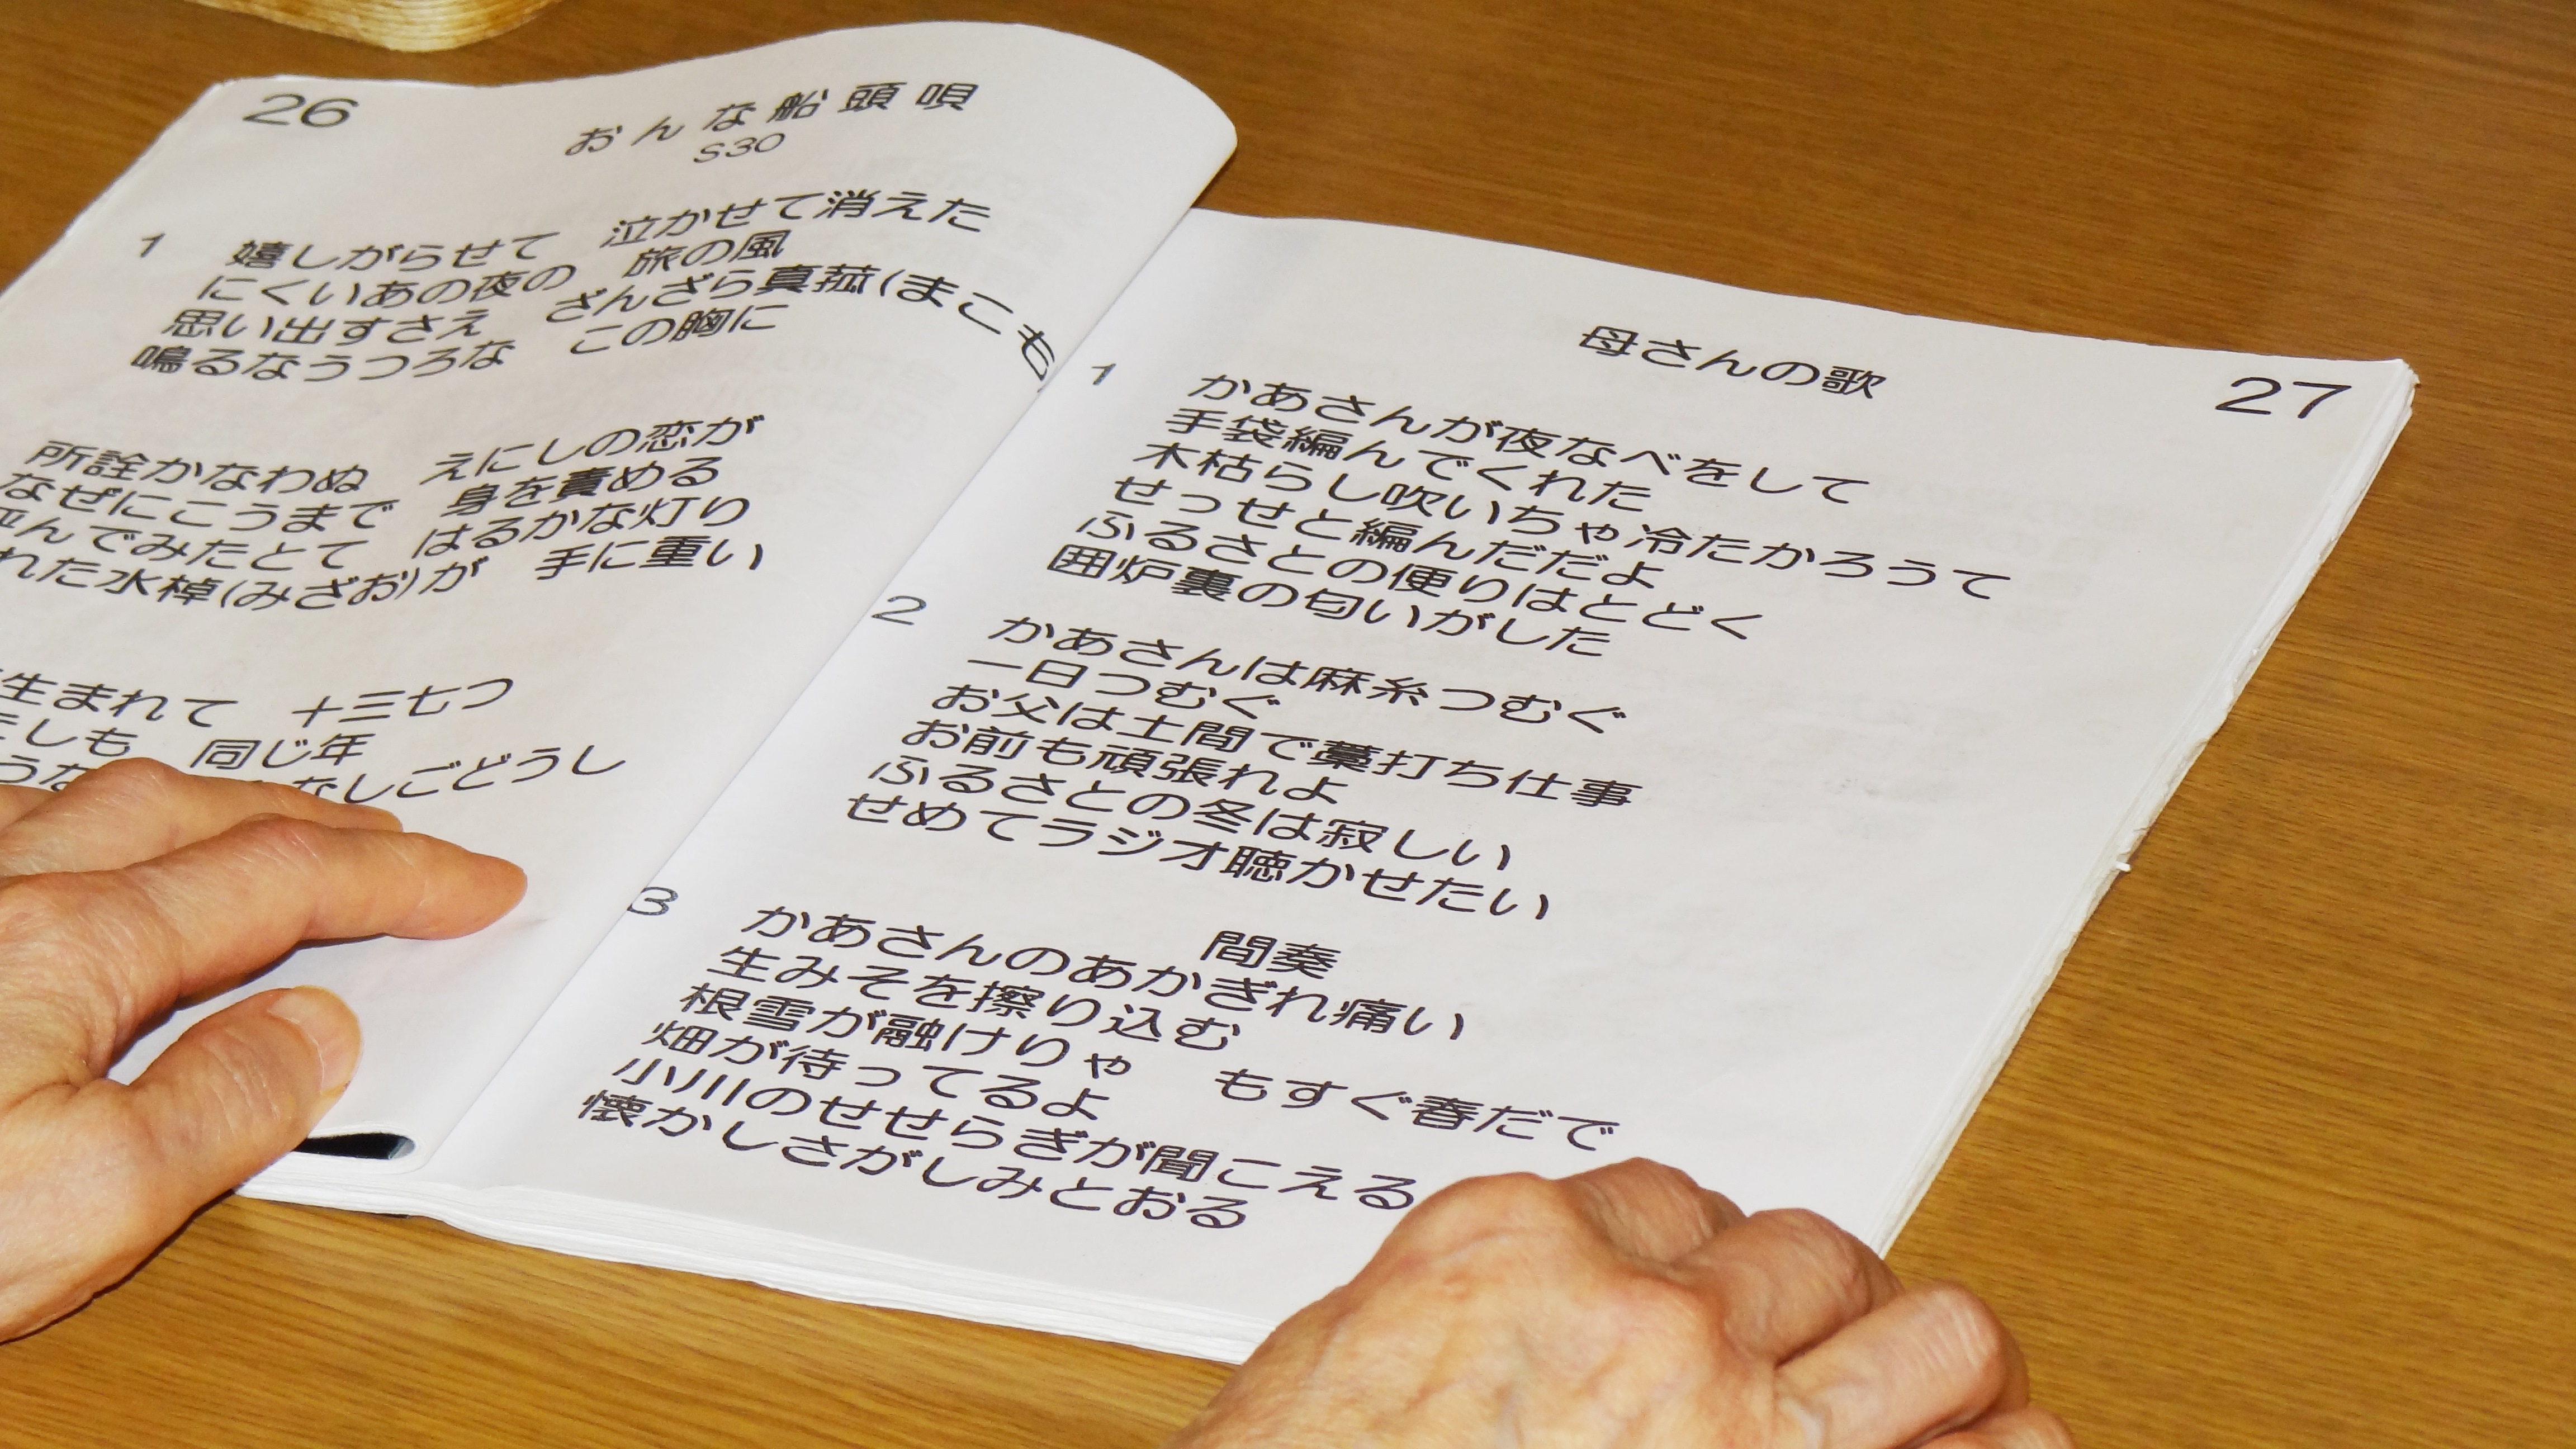 26
おんな船頭唄
S30
1 嬉しがらせて 泣かせて消えた
にくいあの夜の 旅の風
思い出すさえ ざんざら真菰(まこも
鳴るなうつろな この胸に
所詮かなわぬ えにしの恋が
なぜにこうまで 身を責める
んでみたとて はるかな灯り
れた水棹(みざお)が 手に重い
生まれて 十三七つ
しも 同じ年
うな なしごどうし
27
母さんの歌
1 かあさんが夜なべをして
手袋編んでくれた
木枯らし吹いちゃ冷たかろうて
せっせと編んだだよ
ふるさとの便りはとどく
囲炉裏の匂いがした
2 かあさんは麻糸つむぐ
一日つむぐ
お父は土間で藁打ち仕事
お前も頑張れよ
ふるさとの冬は寂しい
せめてラジオ聴かせたい
間奏
3 かあさんのあかぎれ痛い
生みそを擦り込む
根雪が融けりゃ もすぐ春だで
畑が待ってるよ
小川のせせらぎが聞こえる
懐かしさがしみとおる